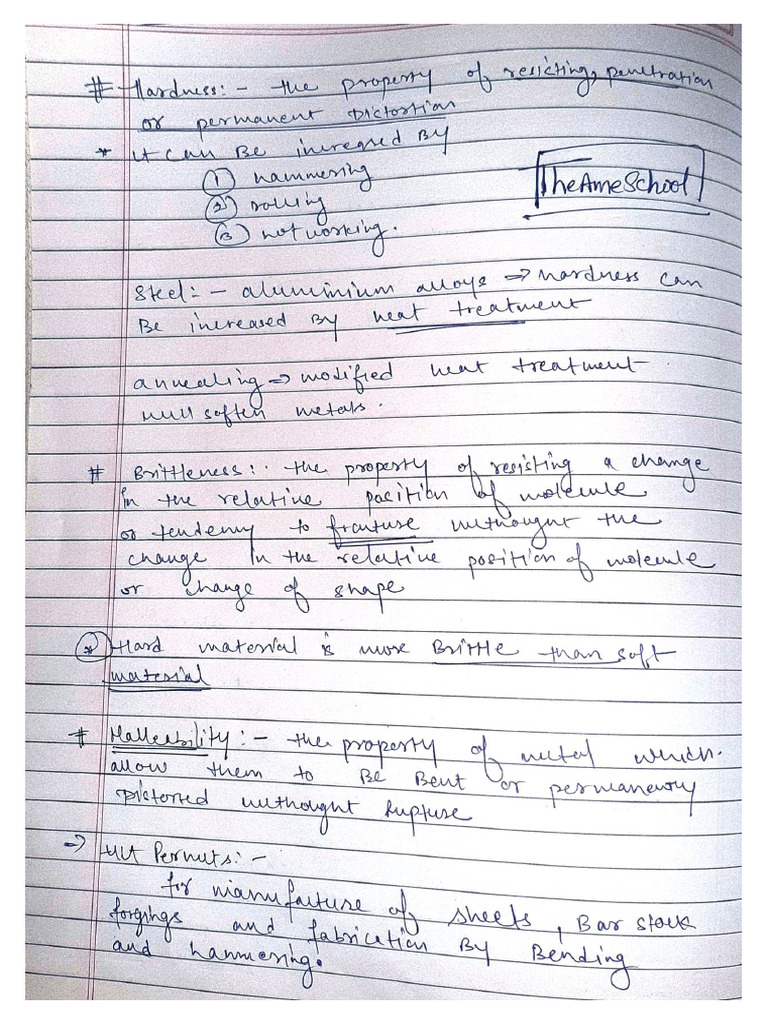 # Hardness:- the property of resisting, penetration
or permanent Distortion
* it can Be increased By
① hammering
② rolling
③ hot working.
TheAmeSchool
Steel:- aluminium alloys ⇒ hardness can
Be increased By heat treatment
annealing ⇒ modified heat treatment
soften metals.
# Brittleness:- the property of resisting a change
in the relative position of molecule
or tendency to fracture withought the
change in the relative position of molecule
or change of shape
* Hard material is more Brittle than soft
material
# Malleability:- the property of metal which
allow them to Be Bent or permanently
Distorted withought Rupture
⇒ Permits:-
for manufacture of sheets, Bar stock
forgings and fabrication By Bending
and hammering.